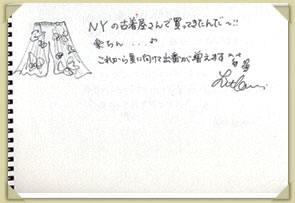 NYの古着屋さんで買ってきたんだ〜!!
楽ちん....♪
これから夏に向けて出番が増えます